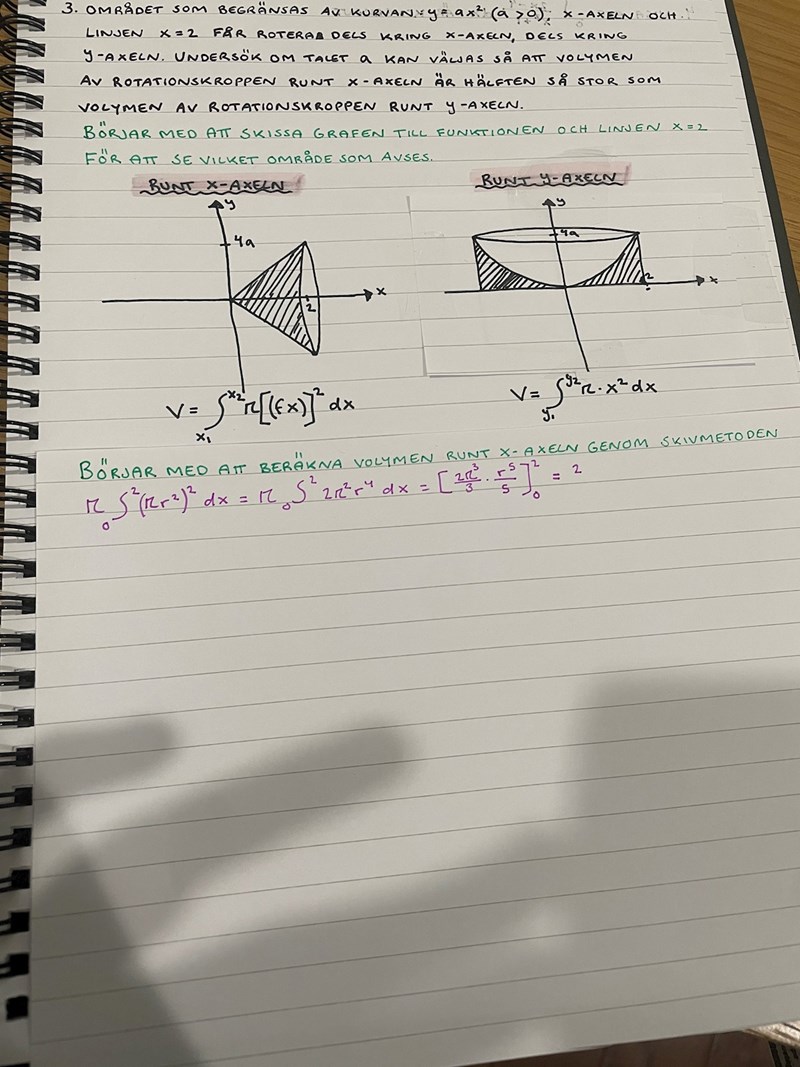 3. OMRÅDET SOM BEGRÄNSAS AV KURVAN y = ax² (a > 0), X-AXELN OCH
LINJEN X=2 FÅR ROTERA DELS KRING X-AXELN, DELS KRING
y-AXELN. UNDERSÖK OM TALET a KAN VÄLJAS SÅ ATT VOLYMEN
AV ROTATIONSKROPPEN RUNT X-AXELN ÄR HÄLFTEN SÅ STOR SOM
VOLYMEN AV ROTATIONSKROPPEN RUNT y-AXELN.
BÖRJAR MED ATT SKISSA GRAFEN TILL FUNKTIONEN OCH LINJEN X=2
FÖR ATT SE VILKET OMRÅDE SOM AVSES.
RUNT X-AXELN
y
4a
x
2
V = ∫x₁^x₂ π[(fx)]² dx
RUNT Y-AXELN
y
4a
2
x
V = ∫y₁^y₂ π · x² dx
BÖRJAR MED ATT BERÄKNA VOLYMEN RUNT X-AXELN GENOM SKIVMETODEN
π ₀∫² (πr²)² dx = π ₀∫² 2π²r⁴ dx = [2π³/3 · r⁵/5]₀² = 2